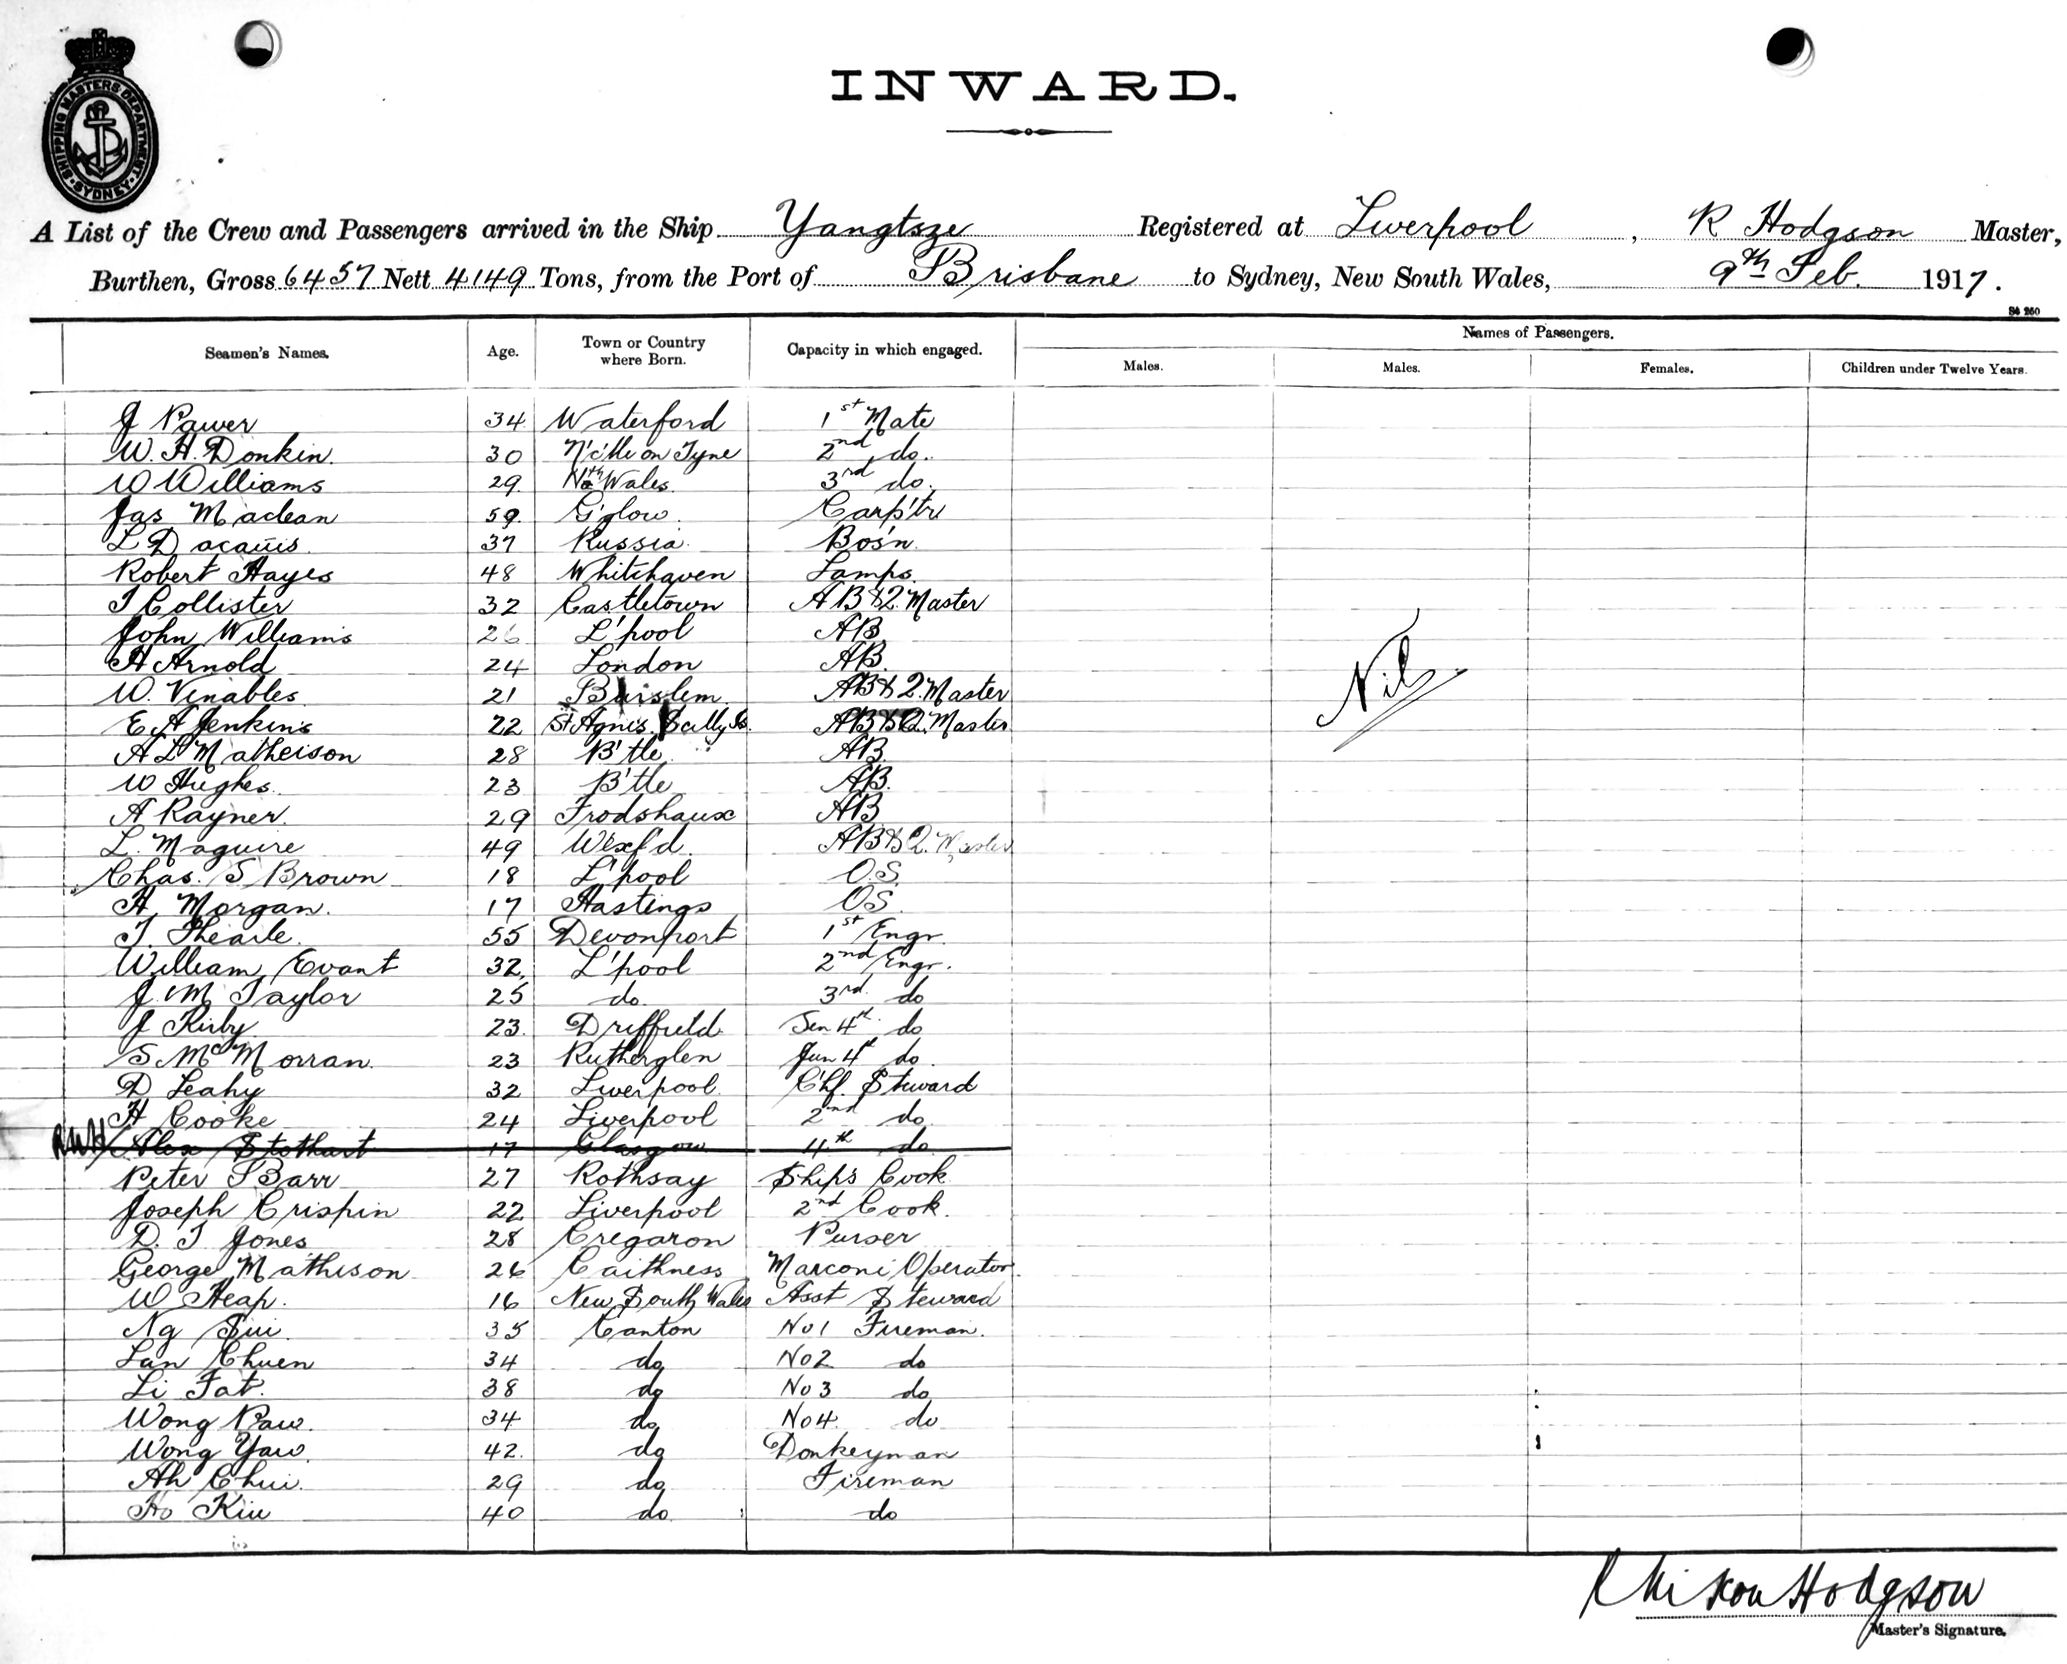 SHIPPING MASTERS DEPARTMENT · SYDNEY ·
INWARD.
A List of the Crew and Passengers arrived in the Ship Yangtsze Registered at Liverpool, R Hodgson Master,
Burthen, Gross 6457 Nett 4149 Tons, from the Port of Brisbane to Sydney, New South Wales, 9th Feb. 1917.
Names of Passengers.
Seamen's Names. Age. Town or Country where Born. Capacity in which engaged. Males. Males. Females. Children under Twelve Years.
J Power 34 Waterford 1st Mate
W. H. Donkin. 30 N'c'tle on Tyne 2nd do.
W Williams 29. Nth Wales. 3rd do.
Jas Maclean 59. G'glow. Carp'tr
L D 37 Russia Bos'n.
Robert Hayes 48 Whitehaven Lamps.
T Collister 32 Castletown AB & 2. Master
John Williams 26 L'pool AB
H Arnold 24 London AB.
W. Venables. 21 Burslem AB & 2. Master
E A Jenkins 22 St Agnis. Scilly Is. AB & 2. Master
A L Matheison 28 B'tle AB.
W Hughes. 23 B'tle AB.
A Rayner. 29 Frodsham AB
L. Maguire 49 Wexf'd. AB & 2. Master
Chas. S Brown 18 L'pool O.S.
H Morgan. 17 Hastings OS.
T. Thearle. 55 Devonport 1st Engr.
William Evant 32. L'pool 2nd Engr.
J. M Taylor 25 do. 3rd do
J Kirby 23. Driffield Sen 4th do
S McMorran. 23 Rutherglen Jun 4th do.
D Leahy 32 Liverpool. Chf. Steward
H Cooke 24 Liverpool 2nd do
Alex Stothart 17 Glasgow 4th do
Peter Barr 27 Rothsay Ship's Cook
Joseph Crispin 22 Liverpool 2nd Cook.
D. T Jones 28 Cregaron Purser
George Mathison 26 Caithness Marconi Operator
W Heap. 16 New South Wales Asst Steward
Ng Sui. 35 Canton No1 Fireman.
Lan Chuen 34 do No2 do
Li Fat. 38 do No3 do
Wong Paw. 34 do No4 do
Wong Yaw. 42. do Donkeyman
Ah Chui. 29 do Fireman
Ho Kiu 40 do do
Nil
Hodgson
Master's Signature.